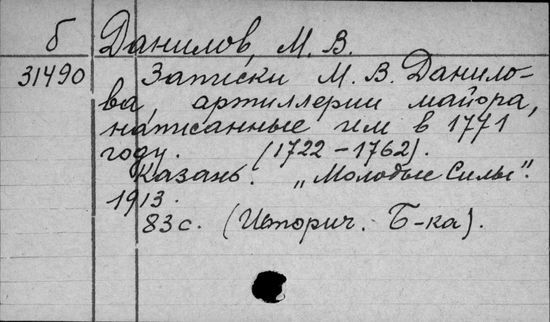 б Данилов, М. В.
31490 Записки М. В. Данило-
ва, артиллерии майора,
написанные им в 1771
году. (1722 - 1762).
Казань. „Молодые Силы".
1913.
83 с. (Историч. Б-ка).